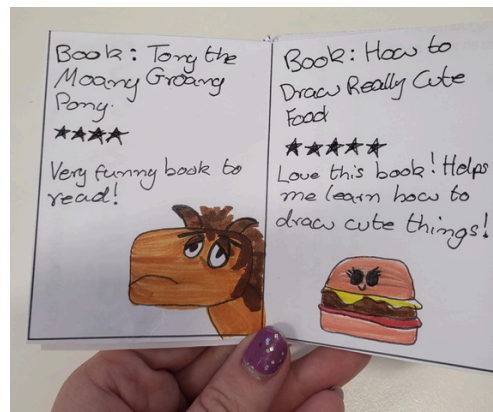 Book: Tony the
Moany Groany
Pony.
★★★★
Very funny book to
read!
Book: How to
Draw Really Cute
Food
★★★★★
Love this book! Helps
me learn how to
draw cute things!